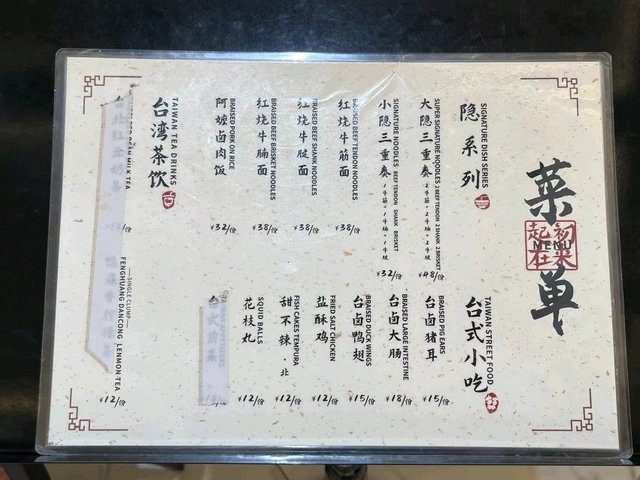 菜单
MENU
初来
起在
SIGNATURE DISH SERIES
隐系列
SUPER SIGNATURE NOODLES 2 BEEF TENDON 2 SHANK 2 BRISKET
大隐三重奏 2牛筋+2牛腩+2牛腱 ¥48/份
SIGNATURE NOODLES BEEF TENDON SHANK BRISKET
小隐三重奏 1牛筋+1牛腩+1牛腱 ¥32/份
BRAISED BEEF TENDON NOODLES
红烧牛筋面 ¥38/份
BRAISED BEEF SHANK NOODLES
红烧牛腱面 ¥38/份
BRAISED BEEF BRISKET NOODLES
红烧牛腩面 ¥38/份
BRAISED PORK ON RICE
阿嬷卤肉饭 ¥32/份
TAIWAN TEA DRINKS
台湾茶饮
BEAN MILK TEA
/份
TAIWAN STREET FOOD
台式小吃
BRAISED PIG EARS
台卤猪耳 ¥15/份
BRAISED LARGE INTESTINE
台卤大肠 ¥18/份
BRAISED DUCK WINGS
台卤鸭翅 ¥15/份
FRIED SALT CHICKEN
盐酥鸡 ¥12/份
FISH CAKES TEMPURA
甜不辣·北 ¥12/份
SQUID BALLS
花枝丸 ¥12/份
台式 /份
SINGLE CLUMP
FENGHUANG DANCONG LENMON TEA
¥12/份